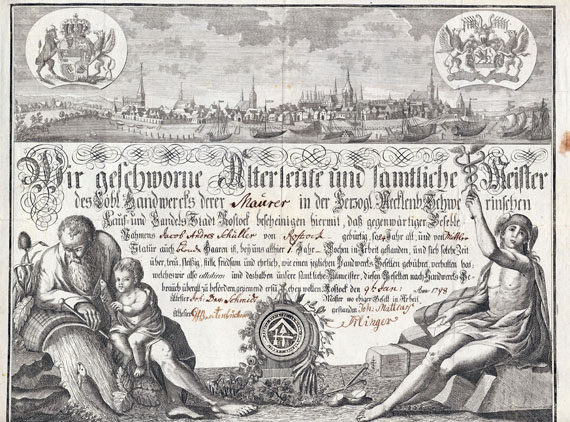 Wir geschworne Älterleute und samtliche Meister
des Löbl. Handwercks derer Maurer in der Herzogl. Mecklenb. Schwe rinschen
Kauf- und Handels Stadt Rostock bescheinigen hiermit, daß gegenwärtiger Geselle
Nahmens Jacob Andres Schüller von Rostock gebürtig, Jahr alt, und von
Statur auch Haaren ist, bey uns allhier 1 Jahr Wochen in Arbeit gestanden, und sich solche Zeit
über, treu, fleißig, stille, friedsam und ehrlich, wie einem jeglichen Handwerks-Gesellen gebühret, verhalten hat,
welches wir also attestiren und deshalben unsere samtliche Mitmeister, diesen Gesellen nach Handwerks-Ge
brauch überall zu befördern, geziemend ersuchen wollen. Rostock den 9t Jan: Anno 1798
Ältester Joh. Dav. Schmidt Meister wo obiger Gesell in Arbeit
Ältester gestanden Joh.